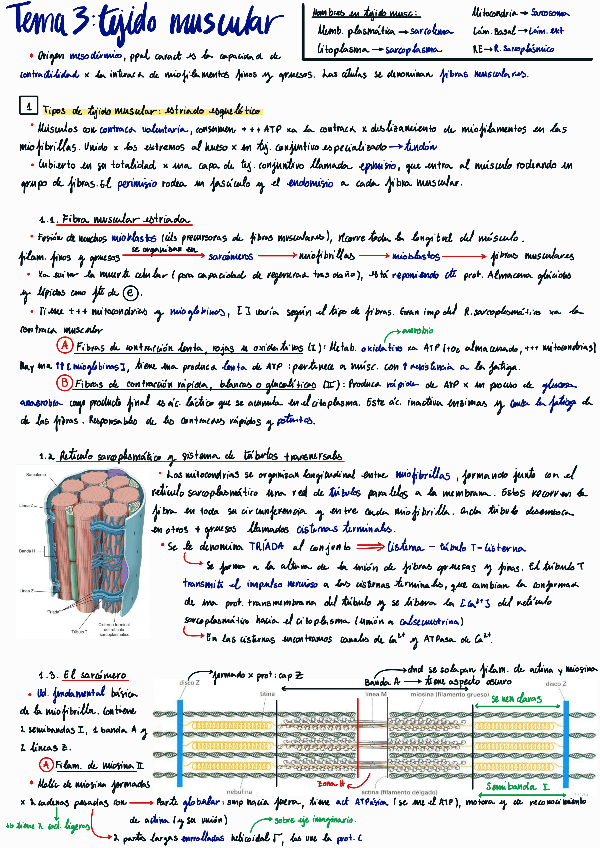 Tema 3: tejido muscular
Nombres en tejido musc.:
Memb. plasmática → sarcolema
Citoplasma → sarcoplasma
Mitocondria → Sarcosoma
Lám. Basal → Lám. ext
RE → R. Sarcoplásmico
• Origen mesodérmico, ppal caract es la capacidad de
contractilidad x la interacc de miofilamentos finos y gruesos. Las células se denominan fibras musculares.
1 Tipos de tejido muscular: estriado esquelético
• Músculos con contracc voluntaria, consumen +++ ATP xa la contracc x deslizamiento de miofilamentos en las
miofibrillas. Unido x los extremos al hueso x un tej. conjuntivo especializado → tendón
• Cubierto en su totalidad x una capa de tej. conjuntivo llamada epimisio, que entra al músculo rodeando en
grupo de fibras. El perimisio rodea un fascículo y el endomisio a cada fibra muscular.
1.1. Fibra muscular estriada
• Fusión de muchos mioblastos (céls precursoras de fibras musculares), recorre toda la longitud del músculo.
filam. finos y gruesos se organizan en → sarcómeros → miofibrillas → mioblastos → fibras musculares
• Xa evitar la muerte celular (poca capacidad de regenerar tras daño), está reponiendo prot. Almacena glúcidos
y lípidos como fte de E.
• Tiene +++ mitocondrias y mioglobinas, [ ] varía según el tipo de fibras. Gran imp del R. sarcoplasmático xa la
contracc muscular
→ aerobio
A Fibras de contracción lenta, rojas u oxidativas (I): Metab. oxidativo xa ATP (+O2 almacenado, +++ mitocondrias)
Hay una ↑↑[mioglobinas], tiene una producc lenta de ATP: pertenece a músc. con ↑ resistencia a la fatiga.
B Fibras de contracción rápida, blancas o glucolíticas (II): Produce rápida de ATP x un proceso de glucosa
anaerobia cuyo producto final es ác. láctico que se acumula en el citoplasma. Este ác. inactiva enzimas y causa la fatiga de
de las fibras. Responsables de las contracciones rápidas y potentes.
1.2 Retículo sarcoplasmático y sistema de túbulos transversales
• Las mitocondrias se organizan longitudinal entre miofibrillas, formando junto con el
retículo sarcoplasmático una red de túbulos paralelos a la membrana. Estos recorren la
fibra en toda su circunferencia y entre cada miofibrilla. Cada túbulo desemboca
en otros + gruesos llamados cisternas terminales.
• Se le denomina TRÍADA al conjunto ⇒ Cisterna - túbulo T - cisterna
→ Se forma a la altura de la unión de fibras gruesas y finas. El túbulo T
transmite el impulso nervioso a las cisternas terminales, que cambian la conformac
de una prot. transmembrana del túbulo y se libera la [Ca2+] del retículo
sarcoplasmático hacia el citoplasma (unión a calsecuestrina)
→ En las cisternas encontramos canales de Ca2+ y ATPasa de Ca2+.
Sarcolema
Línea Z
Banda H
Línea Z
Tríada
Túbulo T
Cisterna terminal
del retículo
sarcoplasmático
1.3. El sarcómero
• Ud. fundamental básica
de la miofibrilla. Contiene
2 semibandas I, 1 banda A y
2 líneas Z.
A Filam. de miosina II
• Moléc de miosina formadas
x 2 cadenas pesadas con → Parte globular: emp hacia fuera, tiene act ATPásica (se une el ATP), motora y de reconocimiento
de actina (y su unión)
tb tiene 2 cad. ligeras
→ sobre eje imaginario.
→ 2 partes largas enrolladas helicoidal, las une la prot. C
→ formado x prot: cap Z
→ dnd se solapan filam. de actina y miosina
Banda A → tiene aspecto oscuro
disco Z
titina
línea M
miosina (filamento grueso)
disco Z
se ven claras
nebulina
Zona H
actina (filamento delgado)
Semibanda I